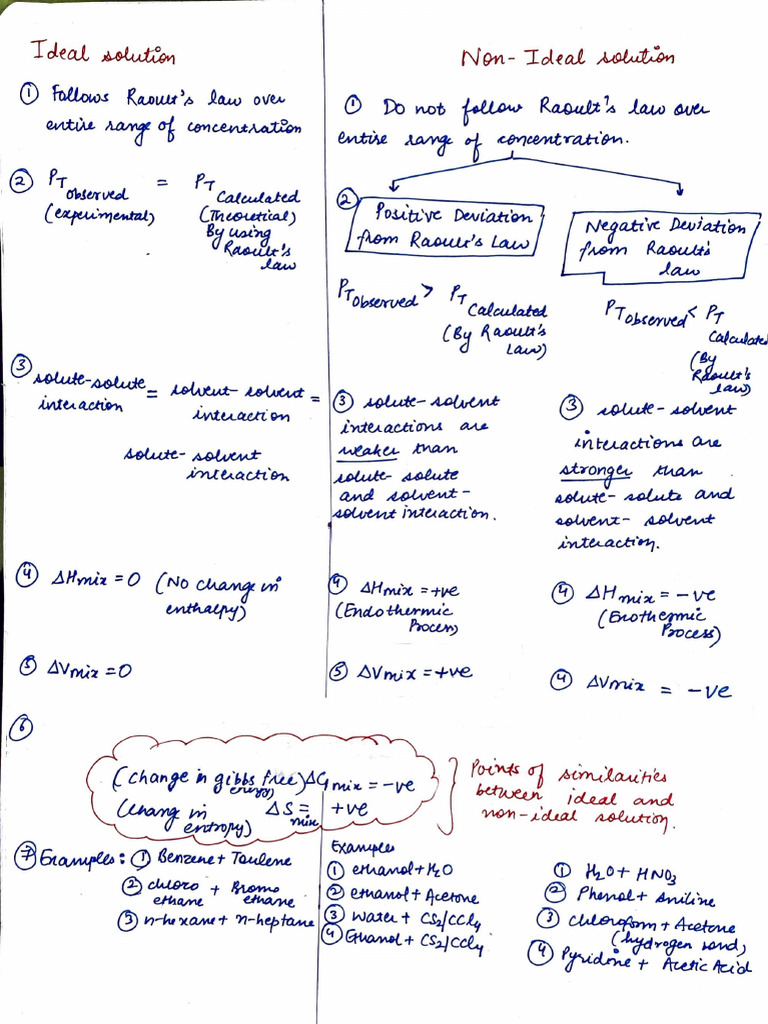 Ideal solution
① Follows Raoult's law over
entire range of concentration
② PT observed = PT Calculated
(experimental) (Theoretical)
By using
Raoult's
law
③ solute-solute = solvent-solvent =
interaction interaction
solute-solvent
interaction
④ ΔHmix = 0 (No change in
enthalpy)
⑤ ΔVmix = 0
Non-Ideal solution
① Do not follow Raoult's law over
entire range of concentration.
② Positive Deviation
from Raoult's Law
PT observed > PT Calculated
(By Raoult's
Law)
③ solute-solvent
interactions are
weaker than
solute-solute
and solvent-
solvent interaction.
④ ΔHmix = +ve
(Endothermic
Process)
⑤ ΔVmix = +ve
Negative Deviation
from Raoult's
law
PT observed < PT Calculated
(By
Raoult's
law)
③ solute-solvent
interactions are
stronger than
solute-solute and
solvent-solvent
interaction.
④ ΔHmix = -ve
(Exothermic
Process)
④ ΔVmix = -ve
⑥
(change in gibbs free) ΔGmix = -ve
energy
(Change in ΔSmix = +ve
entropy)
Points of similarities
between ideal and
non-ideal solution.
⑦ Examples: ① Benzene + Toulene
② chloro + Bromo
ethane ethane
③ n-hexane + n-heptane
Examples
① ethanol + H2O
② ethanol + Acetone
③ Water + CS2/CCl4
④ Ethanol + CS2/CCl4
① H2O + HNO3
② Phenol + Aniline
③ Chloroform + Acetone
(hydrogen bond)
④ Pyridine + Acetic Acid